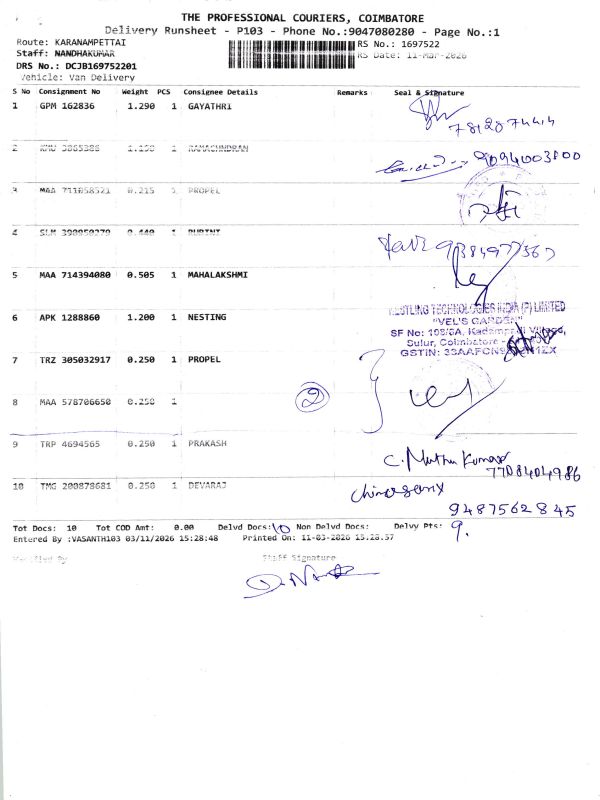 THE PROFESSIONAL COURIERS, COIMBATORE
Delivery Runsheet - P103 - Phone No.:9047080280 - Page No.:1
Route: KARANAMPETTAI RS No.: 1697522
Staff: NANDHAKUMAR RS Date: 11-Mar-2026
DRS No.: DCJB169752201
Vehicle: Van Delivery
S No Consignment No Weight PCS Consignee Details Remarks Seal & Signature
1 GPM 162836 1.290 1 GAYATHRI
2 1 RAMACHNDRAN
9094003800
3 MAA 711058521 0.215 1 PROPEL
4 SLM 390050270 0.440 1 RUBINI
5 MAA 714394080 0.505 1 MAHALAKSHMI
6 APK 1288860 1.200 1 NESTING
NESTLING TECHNOLOGIES INDIA (P) LIMITED
"VEL'S GARDEN"
SF No: 108/8A, Village,
Sulur, Coimbatore -
GSTIN:
7 TRZ 305032917 0.250 1 PROPEL
8 MAA 578706650 0.250 1
2
9 TRP 4694565 0.250 1 PRAKASH
C. Muthu Kumar
7708404986
10 TMG 200878681 0.250 1 DEVARAJ
9487562845
Tot Docs: 10 Tot COD Amt: 0.00 Delvd Docs: 10 Non Delvd Docs: Delvy Pts: 9.
Entered By :VASANTH103 03/11/2026 15:28:48 Printed On: 11-03-2026 15.28.57
Verified By Staff Signature